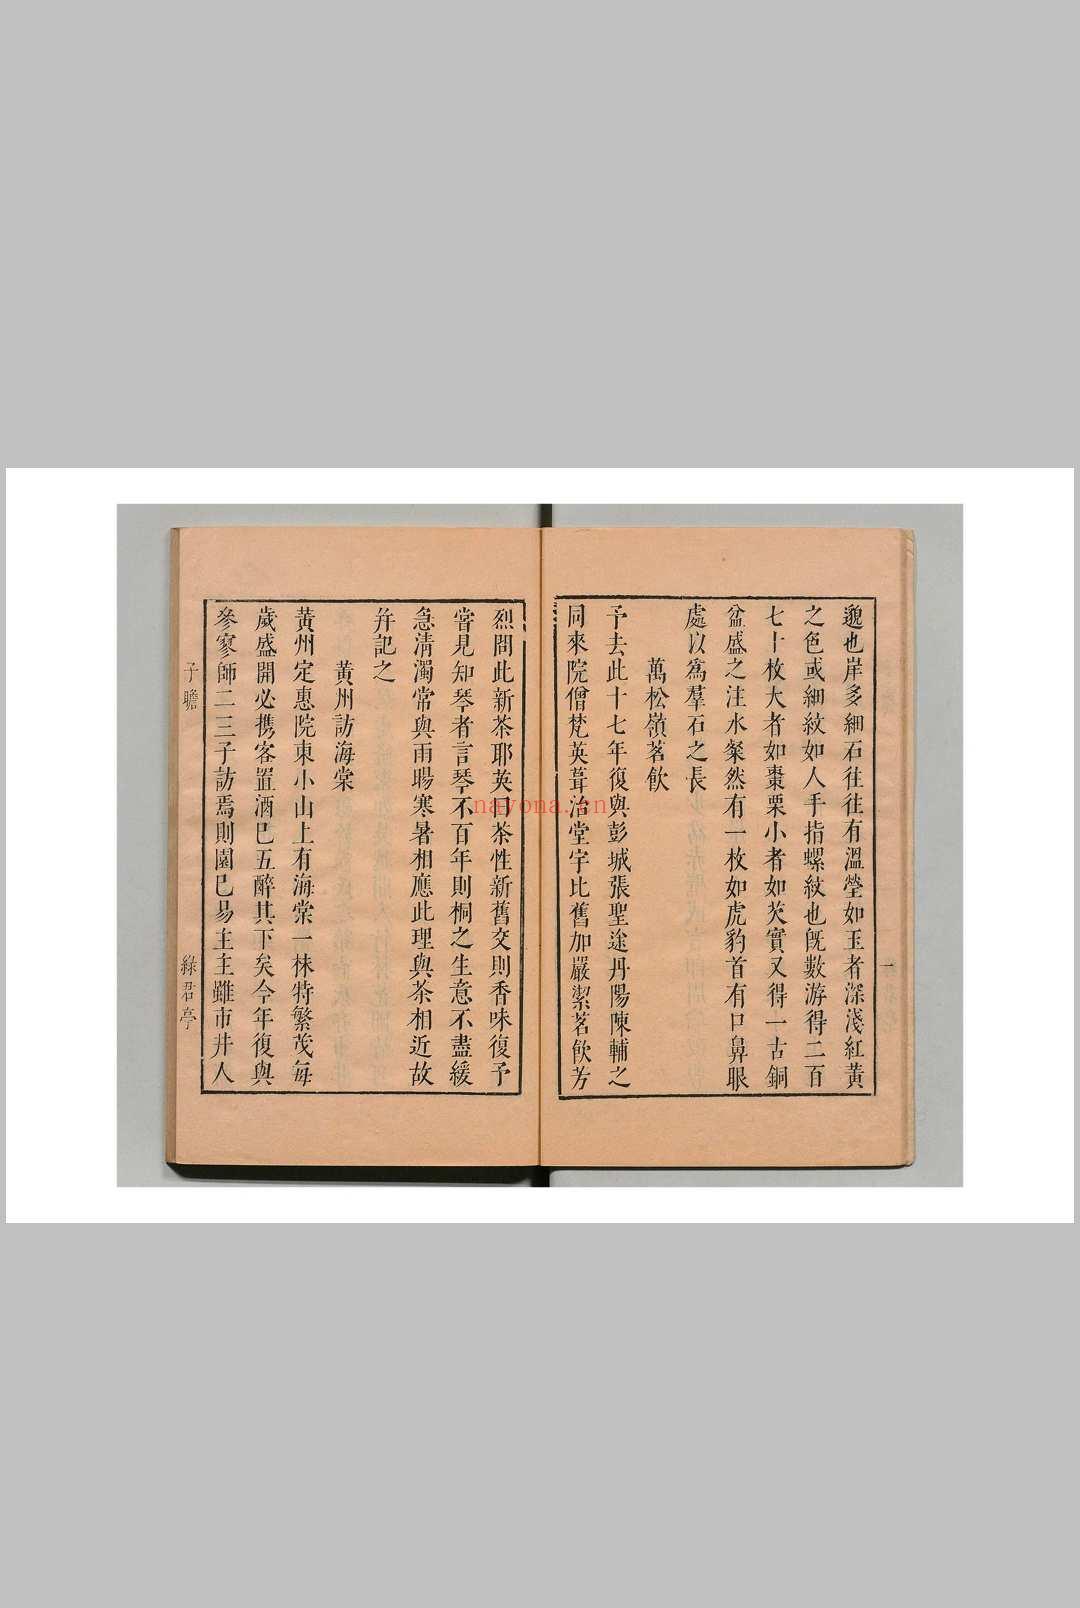 邈也岸多細石往往有溫瑩如玉者深淺紅黃
之色或細紋如人手指螺紋也旣數游得二百
七十枚大者如棗栗小者如芡實又得一古銅
盆盛之注水粲然有一枚如虎豹首有口鼻眼
處以爲羣石之長
萬松嶺茗飲
予去此十七年復與彭城張聖途丹陽陳輔之
同來院僧梵英葺治堂宇比舊加嚴潔茗飲芳
烈問此新茶耶英曰茶性新舊交則香味復予
嘗見知琴者言琴不百年則桐之生意不盡緩
急清濁常與雨暘寒暑相應此理與茶相近故
幷記之
黃州訪海棠
黃州定惠院東小山上有海棠一株特繁茂每
歲盛開必携客置酒已五醉其下矣今年復與
參寥師二三子訪焉則園已易主主雖市井人
子瞻
綠君亭
nayona.cn